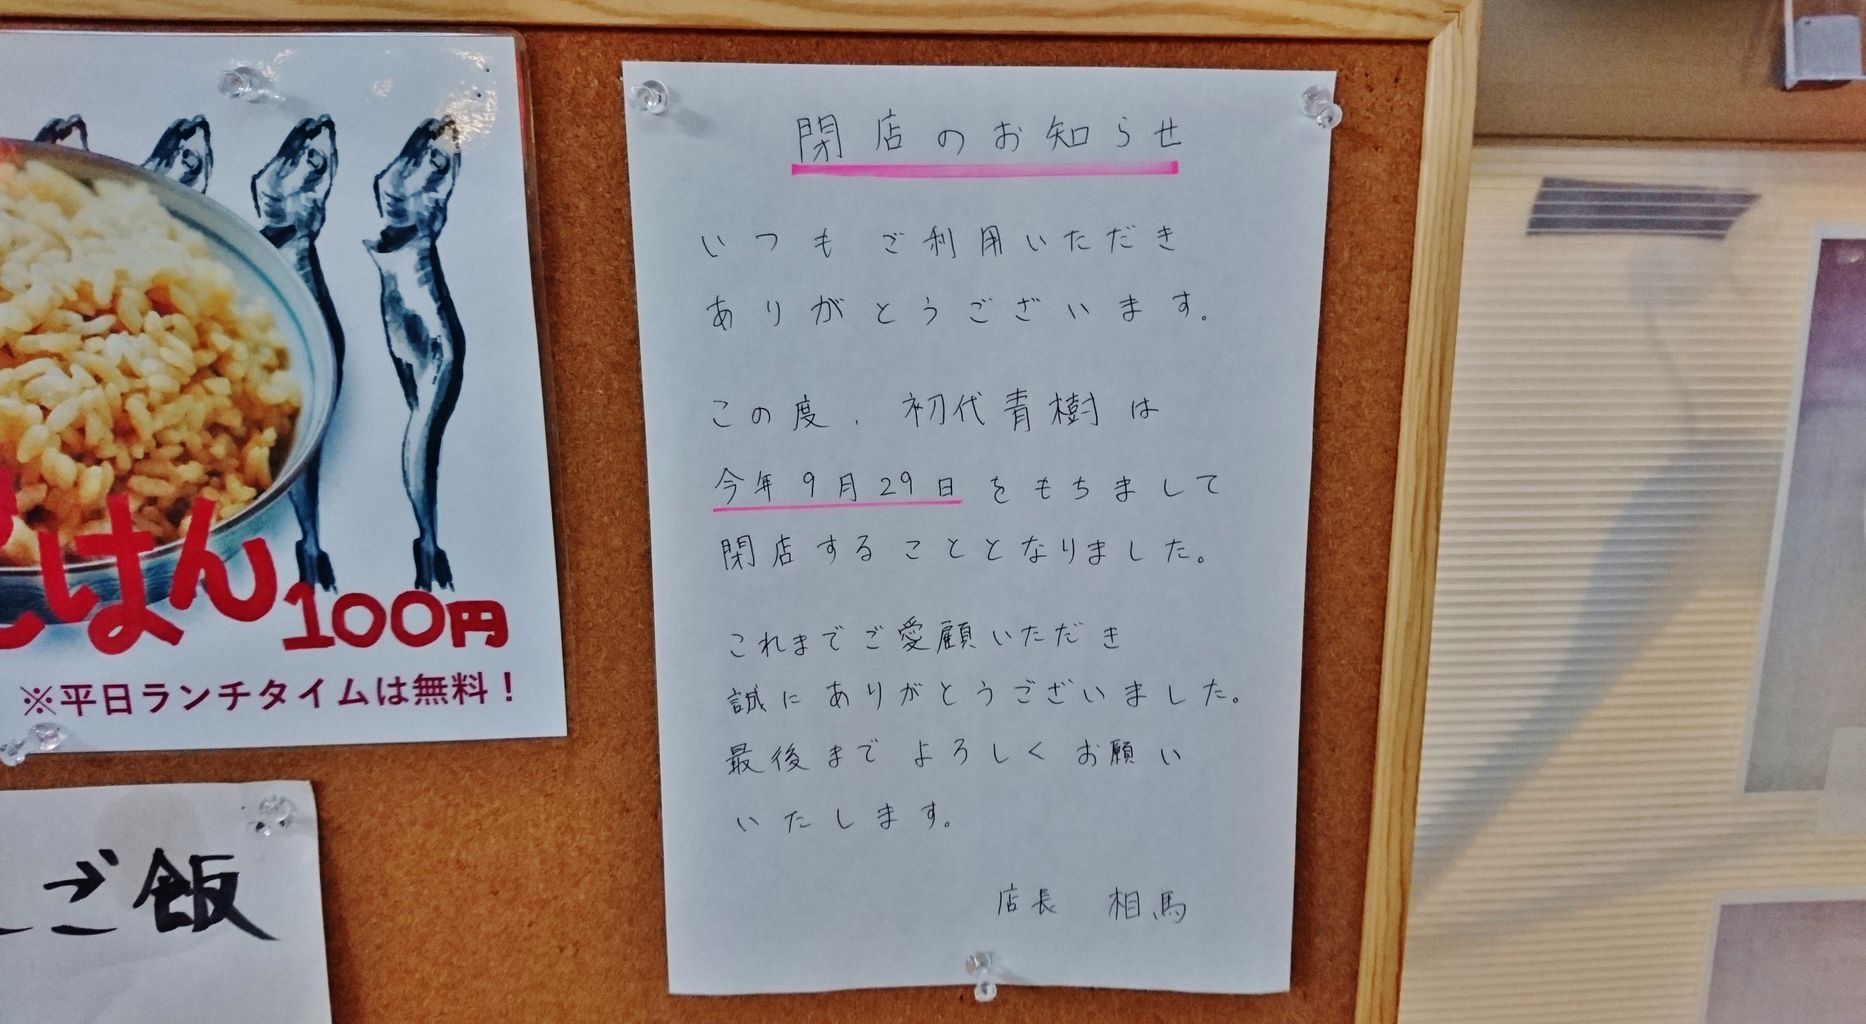 はん
100円
※平日ランチタイムは無料！
ご飯
閉店のお知らせ
いつもご利用いただき
ありがとうございます。
この度、初代青樹は
今年9月29日をもちまして
閉店することとなりました。
これまでご愛顧いただき
誠にありがとうございました。
最後までよろしくお願い
いたします。
店長 相馬